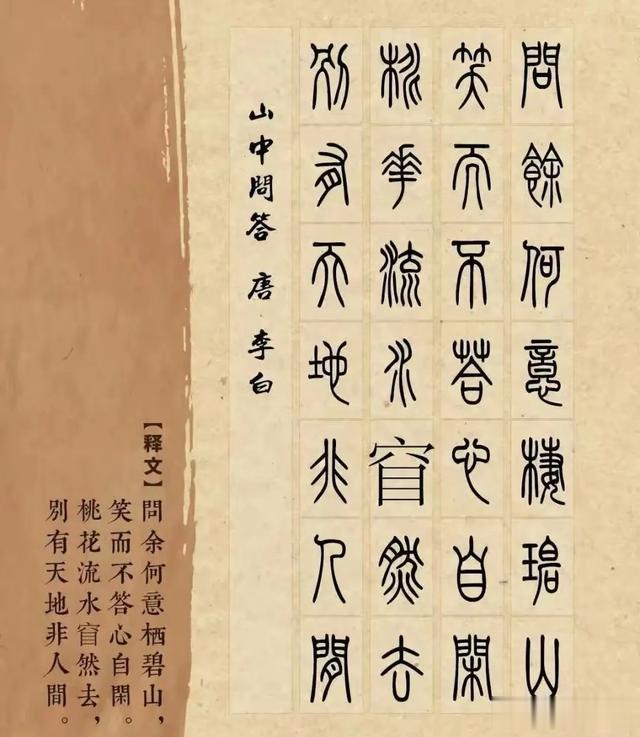 問餘何意棲碧山
笑而不荅心自閑
桃華流水窅然去
別有天地非人間
山中問答 唐 李白
【释文】問余何意栖碧山，
笑而不答心自閑。
桃花流水窅然去，
別有天地非人間。